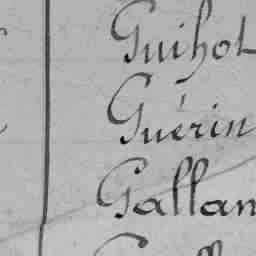 Guihot
Guérin
Gallan